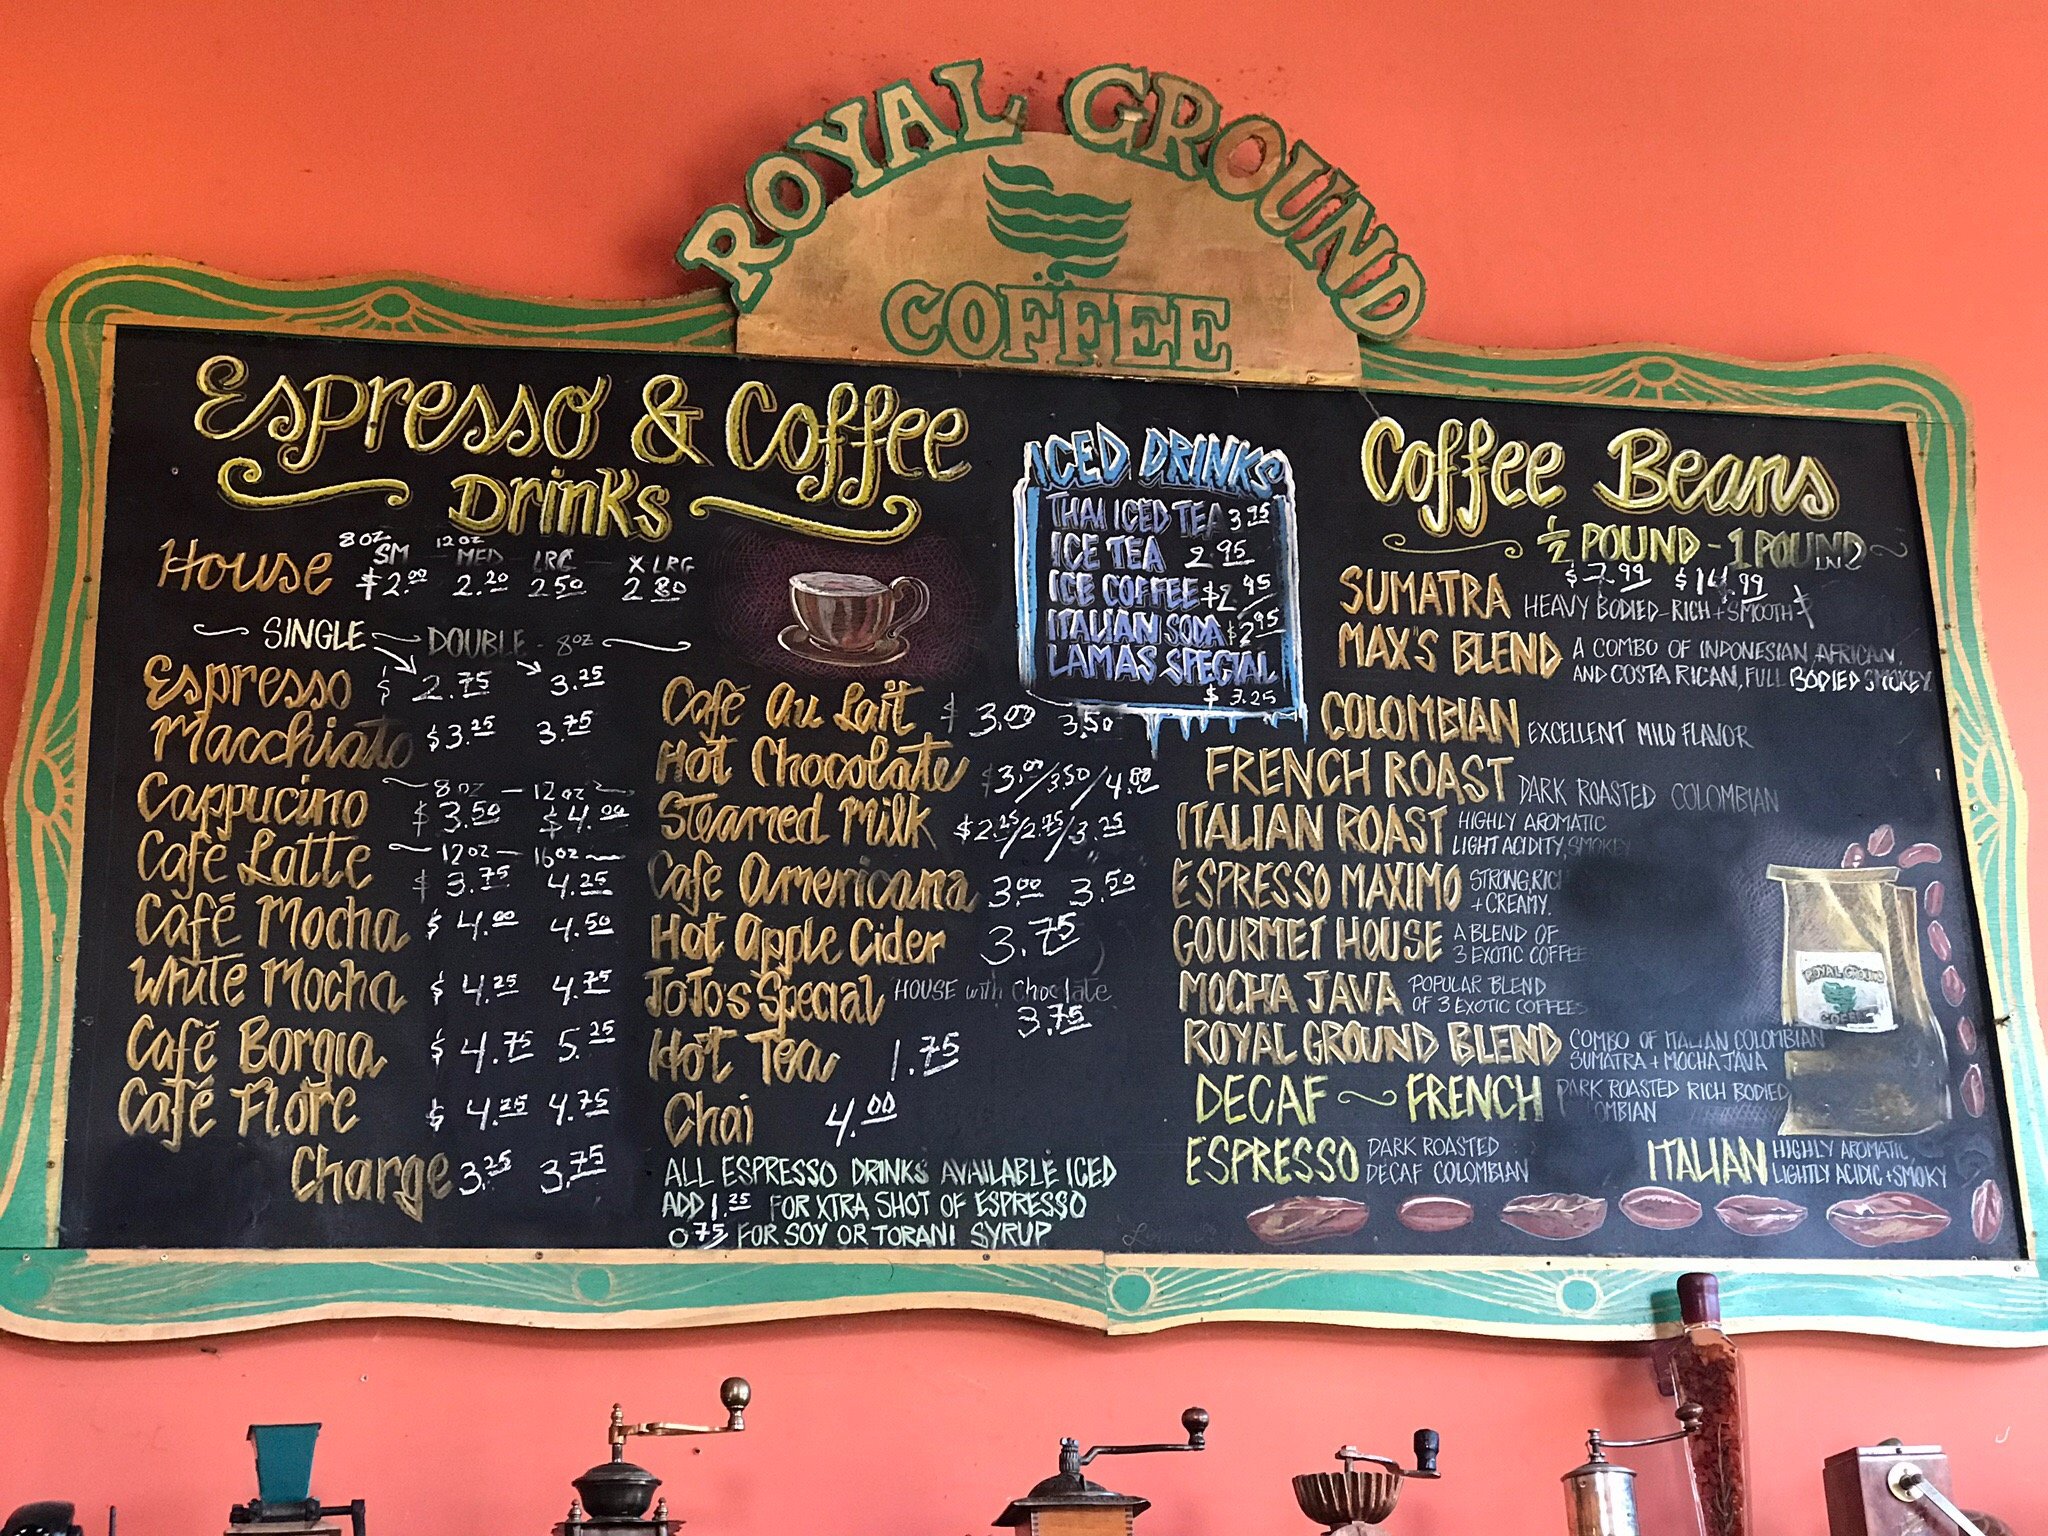 ROYAL GROUND
COFFEE
Espresso & Coffee
Drinks
8 OZ 12 OZ
SM MED LRG X LRG
House $2.00 2.20 2.50 2.80
SINGLE DOUBLE - 8oz
Espresso $ 2.75 3.25
Macchiato $3.25 3.75
8oz - 12oz
Cappucino $3.50 $4.00
12oz - 16oz
Café Latte $3.75 4.25
Café Mocha $4.00 4.50
White Mocha $4.25 4.75
Café Borgia $4.75 5.25
Café Flore $4.25 4.75
Charge 3.25 3.75
Café Au Lait $3.00 3.50
Hot Chocolate $3.00/3.50/4.00
Steamed Milk $2.25/2.75/3.25
Cafe Americana 3.00 3.50
Hot Apple Cider 3.75
JoJo's Special HOUSE with Choclate
3.75
Hot Tea 1.75
Chai 4.00
ALL ESPRESSO DRINKS AVAILABLE ICED
ADD 1.25 FOR XTRA SHOT OF ESPRESSO
0.75 FOR SOY OR TORANI SYRUP
ICED DRINKS
THAI ICED TEA 3.95
ICE TEA 2.95
ICE COFFEE $2.95
ITALIAN SODA $2.95
LAMAS SPECIAL
$3.25
Coffee Beans
1/2 POUND - 1 POUND
$7.99 $14.99
SUMATRA HEAVY BODIED - RICH + SMOOTH
MAX'S BLEND A COMBO OF INDONESIAN, AFRICAN,
AND COSTA RICAN, FULL BODIED SMOKEY
COLOMBIAN EXCELLENT MILD FLAVOR
FRENCH ROAST DARK ROASTED COLOMBIAN
ITALIAN ROAST HIGHLY AROMATIC
LIGHT ACIDITY, SMOKEY
ESPRESSO MAXIMO STRONG, RICH
+ CREAMY.
GOURMET HOUSE A BLEND OF
3 EXOTIC COFFEE
MOCHA JAVA POPULAR BLEND
OF 3 EXOTIC COFFEES
ROYAL GROUND BLEND COMBO OF ITALIAN COLOMBIAN
SUMATRA + MOCHA JAVA
DECAF ~ FRENCH DARK ROASTED RICH BODIED
COLOMBIAN
ESPRESSO DARK ROASTED
DECAF COLOMBIAN
ITALIAN HIGHLY AROMATIC,
LIGHTLY ACIDIC + SMOKY
ROYAL GROUND
COFFEE